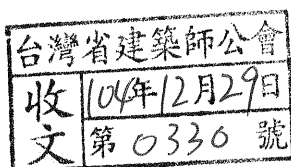 台灣省建築師公會
收文
104年12月29日
第0330號